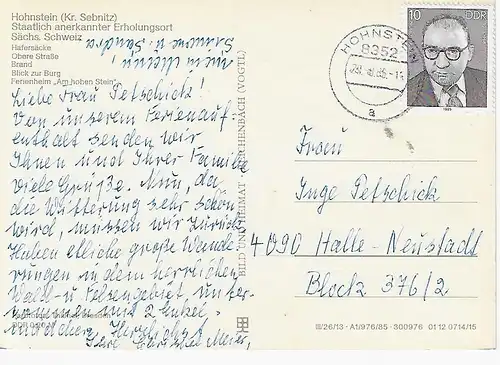 Hohnstein (Kr. Sebnitz)
Staatlich anerkannter Erholungsort
Sächs. Schweiz
Hafersäcke
Obere Straße
Brand
Blick zur Burg
Ferienheim „Am hohen Stein"
Liebe Frau Petschick!
Von unserem Ferienauf-
enthalt senden wir
Ihnen und Ihrer Familie
viele Grüße. Nun, da
die Witterung sehr schön
wird, müssen wir zurück.
Haben etliche große Wande-
rungen in dem herrlichen
Wald- u. Felsengebiet unter-
nommen mit 2 Enkel-
Herzlichst
Ihre Meier,
BILD UND HEIMAT REICHENBACH (VOGTL)
HOHNSTEIN
8352
a
10
DDR
1985
Frau
Inge Petschick
4090 Halle-Neustadt
Block 376/2
III/26/13 · A1/976/85 · 300976 01 12 0714/15